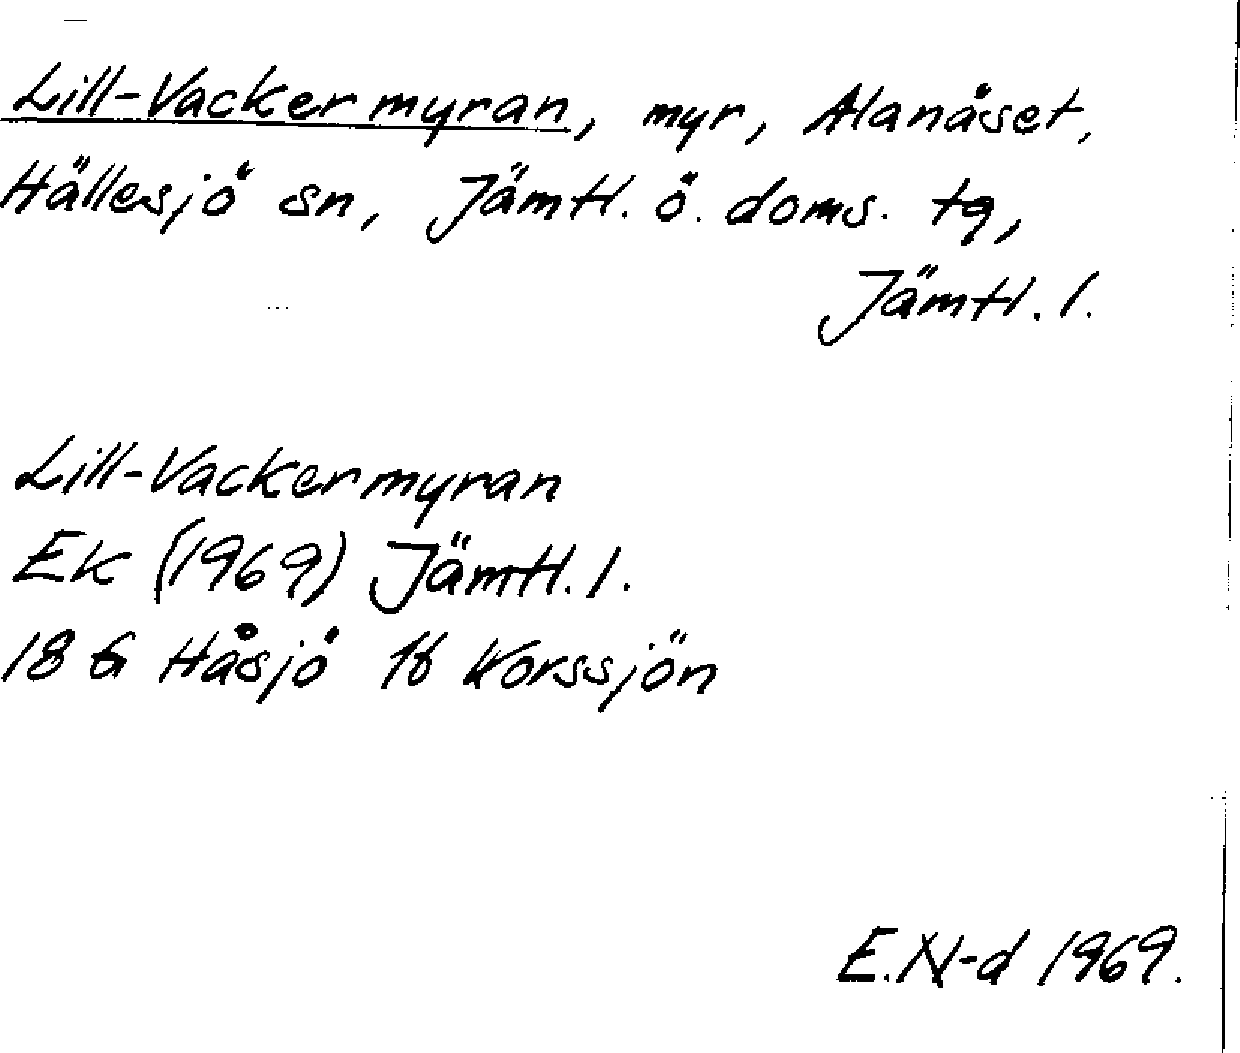 Lill-Vackermyran, myr, Alanäset,
Hällesjö sn, Jämtl. ö. doms. tg,
Jämtl. l.
Lill-Vackermyran
Ek (1969) Jämtl. l.
18 G Håsjö 1f Korssjön
E. N-d 1969.